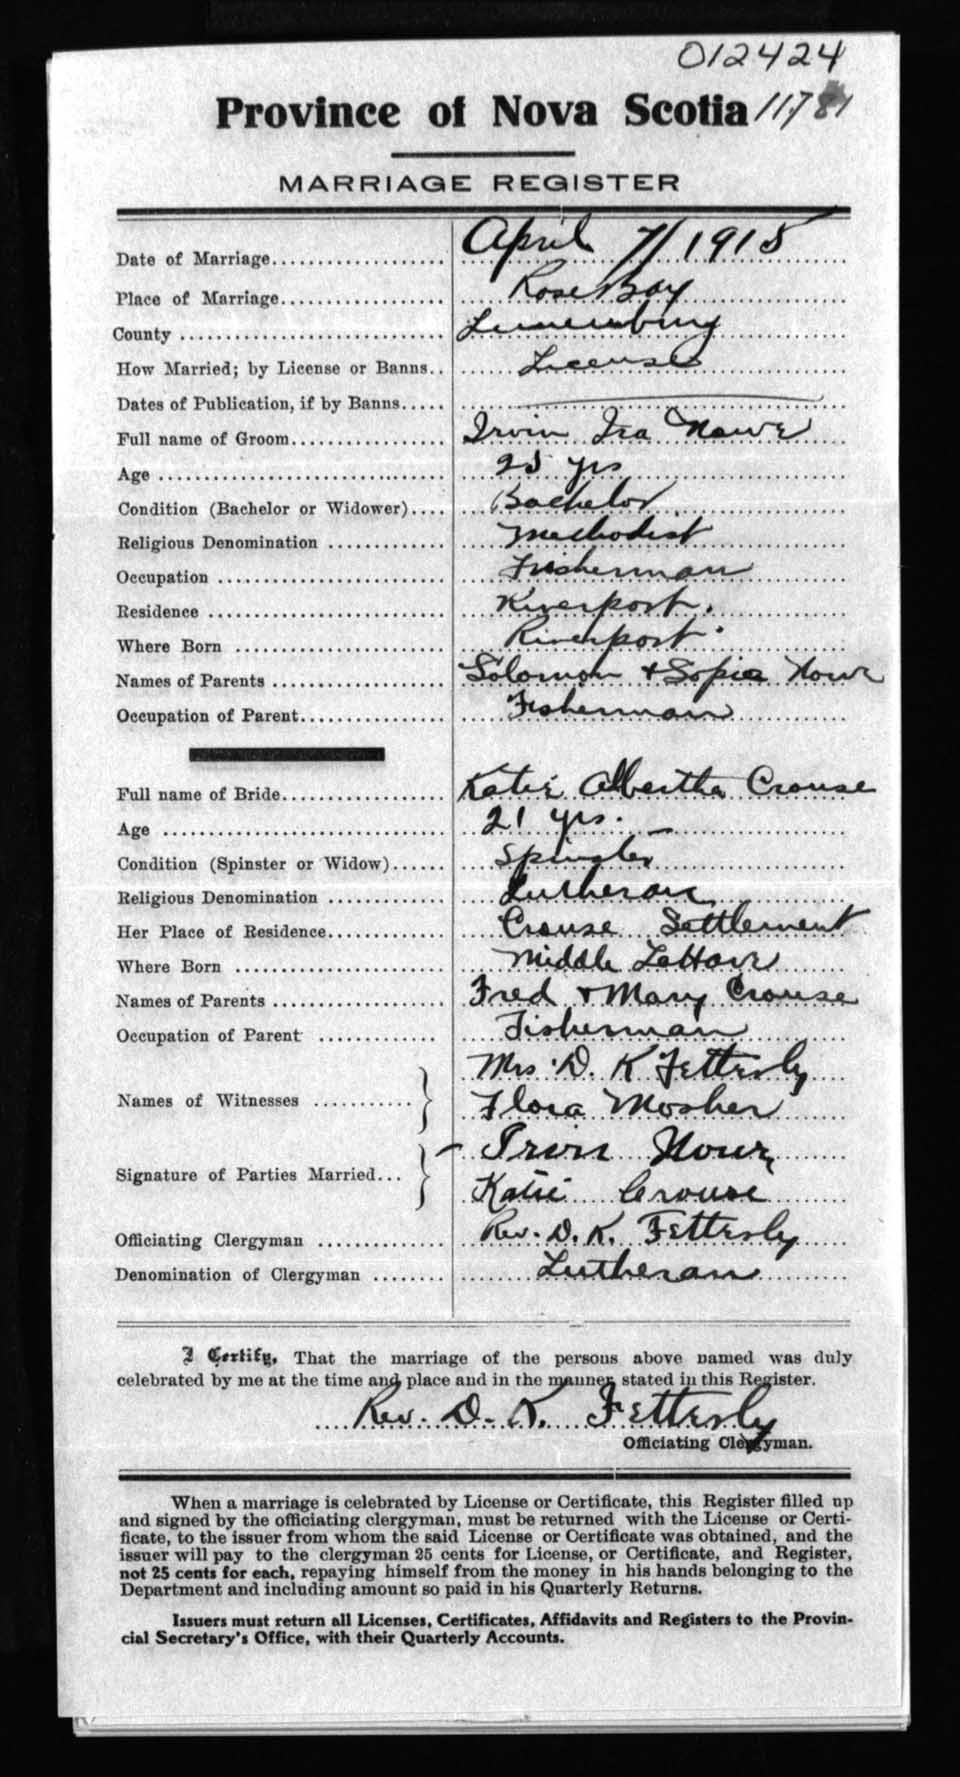 012424
Province of Nova Scotia 11781
MARRIAGE REGISTER
Date of Marriage.................... April 7/1915
Place of Marriage.................. Rose Bay
County ............................. Lunenburg
How Married; by License or Banns.. License
Dates of Publication, if by Banns.....
Full name of Groom................. Irvin Ira Nowe
Age ............................... 25 yrs
Condition (Bachelor or Widower).... Bachelor
Religious Denomination ............. Methodist
Occupation ......................... Fisherman
Residence .......................... Riverport.
Where Born ....................... Riverport.
Names of Parents ................... Solomon & Sopia Nowe
Occupation of Parent................ Fisherman
Full name of Bride.................. Katie Albertha Crouse
Age ............................... 21 yrs.
Condition (Spinster or Widow)...... Spinster
Religious Denomination ............. Lutheran
Her Place of Residence............. Crouse Settlement
Where Born ....................... Middle LaHave
Names of Parents ................... Fred & Mary Crouse
Occupation of Parent ............. Fisherman
Mrs. D. K Fetterly
Names of Witnesses ...........
Flora Mosher
Irvin Nowe
Signature of Parties Married...
Katie Crouse
Officiating Clergyman .............. Rev. D. K. Fetterly
Denomination of Clergyman ........ Lutheran
I Certify, That the marriage of the persons above named was duly
celebrated by me at the time and place and in the manner stated in this Register.
Rev. D. K. Fetterly
Officiating Clergyman.
When a marriage is celebrated by License or Certificate, this Register filled up
and signed by the officiating clergyman, must be returned with the License or Certi-
ficate, to the issuer from whom the said License or Certificate was obtained, and the
issuer will pay to the clergyman 25 cents for License, or Certificate, and Register,
not 25 cents for each, repaying himself from the money in his hands belonging to the
Department and including amount so paid in his Quarterly Returns.
Issuers must return all Licenses, Certificates, Affidavits and Registers to the Provin-
cial Secretary's Office, with their Quarterly Accounts.